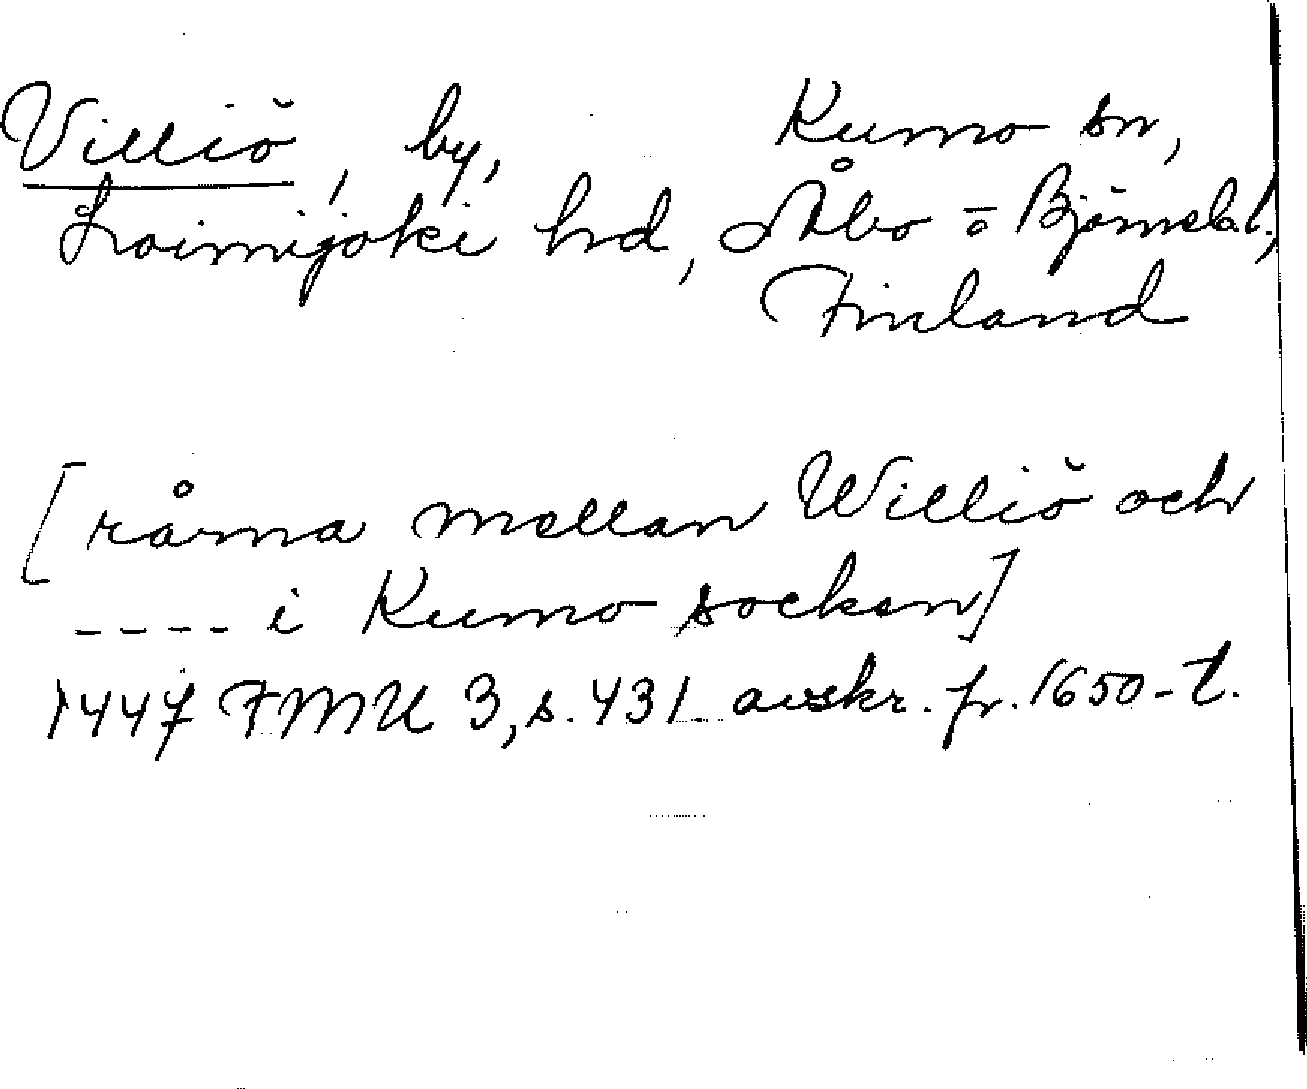 Villiö, by, Kumo sn,
Loimijoki hd, Åbo o Björneb.l.,
Finland
[rårna mellan Williö och
---- i Kumo socken]
1447 FMU 3, s. 431 avskr. fr. 1650-t.